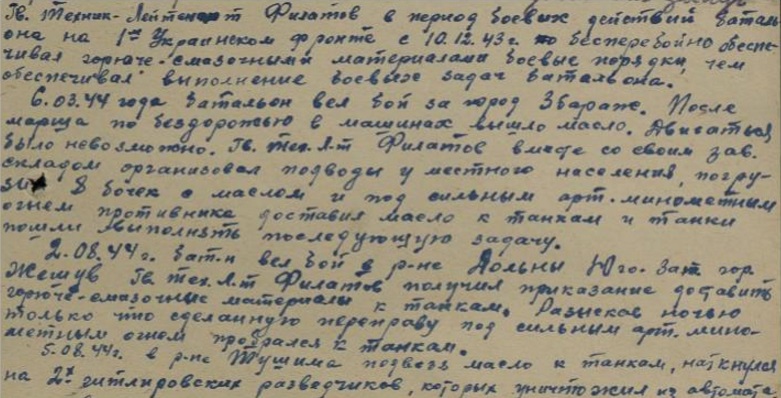 Гв. Техник-Лейтенант Филатов в период боевых действий баталь-
она на 1ом Украинском фронте с 10.12.43г. бесперебойно обеспе-
чивал горюче-смазочными материалами боевые порядки, чем
обеспечивал выполнение боевых задач батальона.
6.03.44 года батальон вел бой за город Збараж. После
марша по бездорожью в машинах вышло масло. Двигаться
было невозможно. Гв. тех. л-т Филатов вместе со своим зав.
складом организовал подводы у местного населения, погру-
зил 8 бочек с маслом и под сильным арт. минометным
огнем противника доставил масло к танкам и танки
пошли выполнять последующую задачу.
2.08.44г. бат-н вел бой в р-не Дольны Юго. Зап. гор.
Жешув Гв. тех. л-т Филатов получил приказание доставить
горюче-смазочные материалы к танкам. Разыскав ночью
только что сделанную переправу под сильным арт. мино-
метным огнем пробрался к танкам.
5.08.44г. в р-не Тушима подвозя масло к танкам, наткнулся
на 2х гитлировских разведчиков, которых уничтожил из автомата